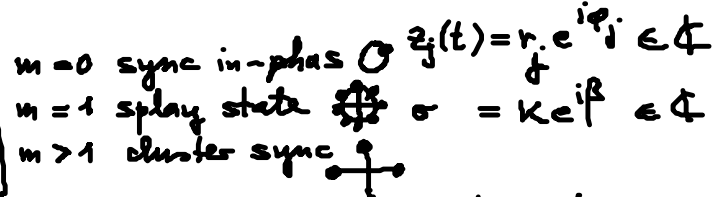 m = 0 sync in-phas z_j(t) = r_j e^{iφ_j} ∈ ℂ
m = 1 splay state σ = K e^{iβ} ∈ ℂ
m > 1 cluster sync